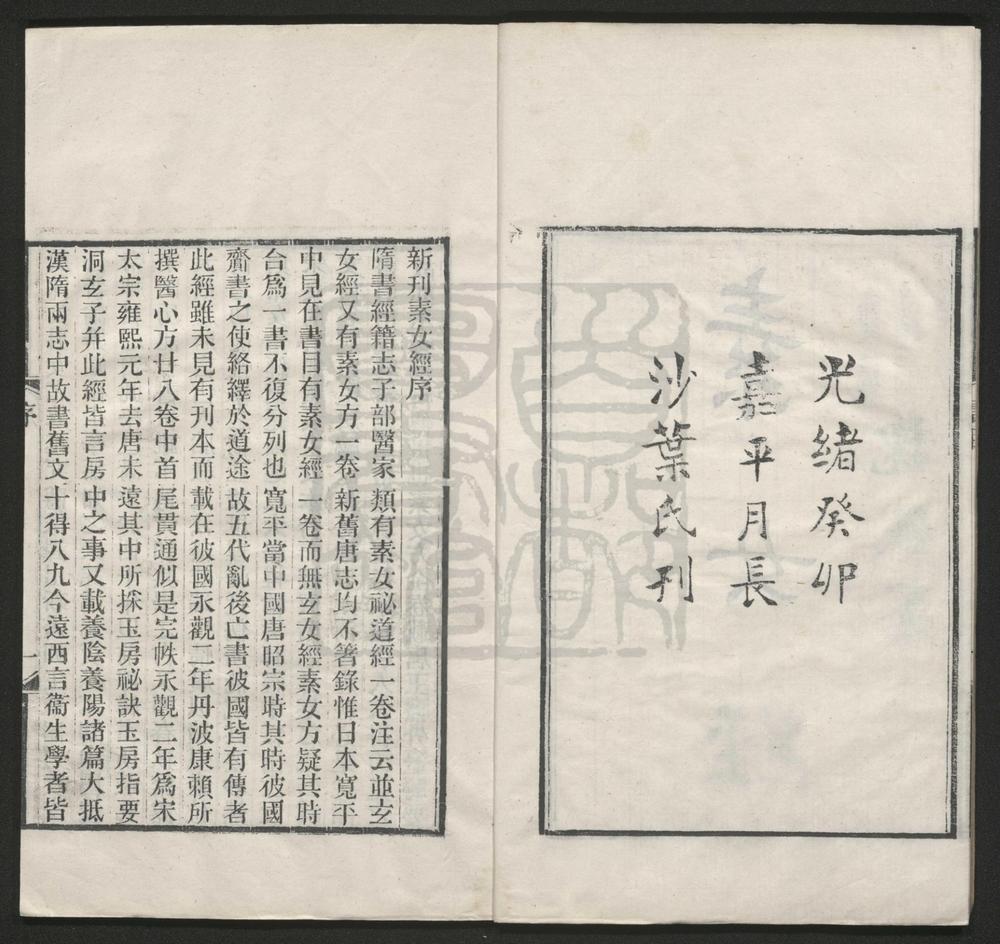 光緒癸卯
嘉平月長
沙葉氏刊
新刊素女經序
隋書經籍志子部醫家類有素女祕道經一卷注云並玄
女經又有素女方一卷新舊唐志均不箸錄惟日本寬平
中見在書目有素女經一卷而無玄女經素女方疑其時
合爲一書不復分列也寬平當中國唐昭宗時其時彼國
齎書之使絡繹於道途故五代亂後亡書彼國皆有傳者
此經雖未見有刊本而載在彼國永觀二年丹波康賴所
撰醫心方廿八卷中首尾貫通似是完帙永觀二年爲宋
太宗雍熙元年去唐未遠其中所採玉房祕訣玉房指要
洞玄子并此經皆言房中之事又載養陰養陽諸篇大抵
漢隋兩志中故書舊文十得八九今遠西言衞生學者皆
序
一